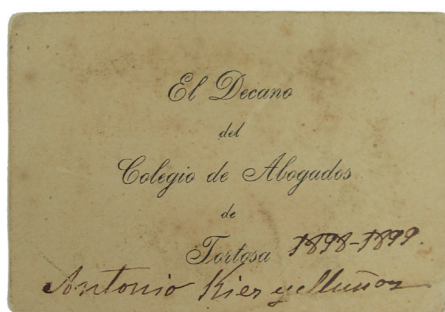 El Decano
del
Colegio de Abogados
de
Tortosa 1898-1899.
Antonio Kies y Muñoz